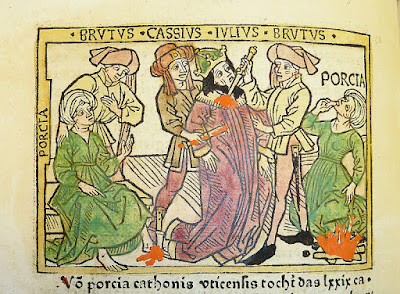 · BRUTUS · CASSIUS · IULIUS · BRUTUS ·
PORCIA
PORCIA
Võ porcia cathonis vticensis tochť das lxxix ca.